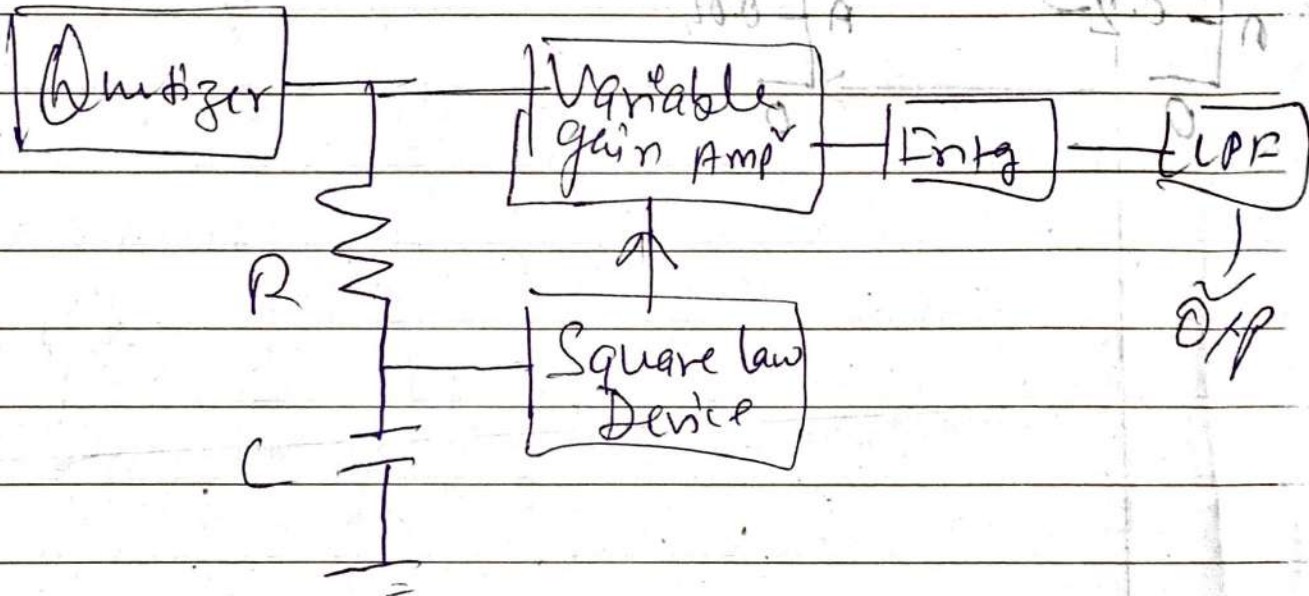 Qnutizer
Variable
gain Amp
Intg
LPF
R
Square law
Device
O/p
C